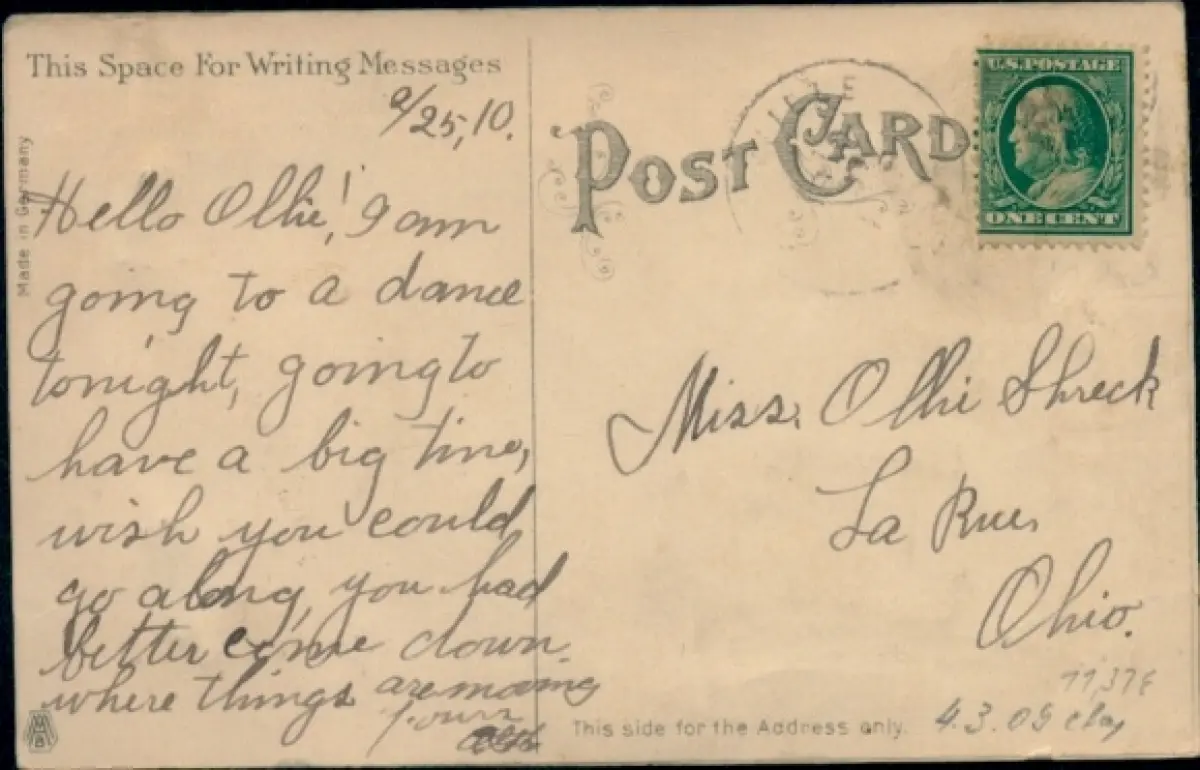 This Space For Writing Messages
/25,10.
Made in Germany
Hello Ollie! I am
going to a dance
tonight, going to
have a big time,
wish you could
go along, you had
better come down
where things are moving
POST CARD
U.S. POSTAGE
ONE CENT
Miss. Ollie Shreck
La Rue,
Ohio.
This side for the Address only.